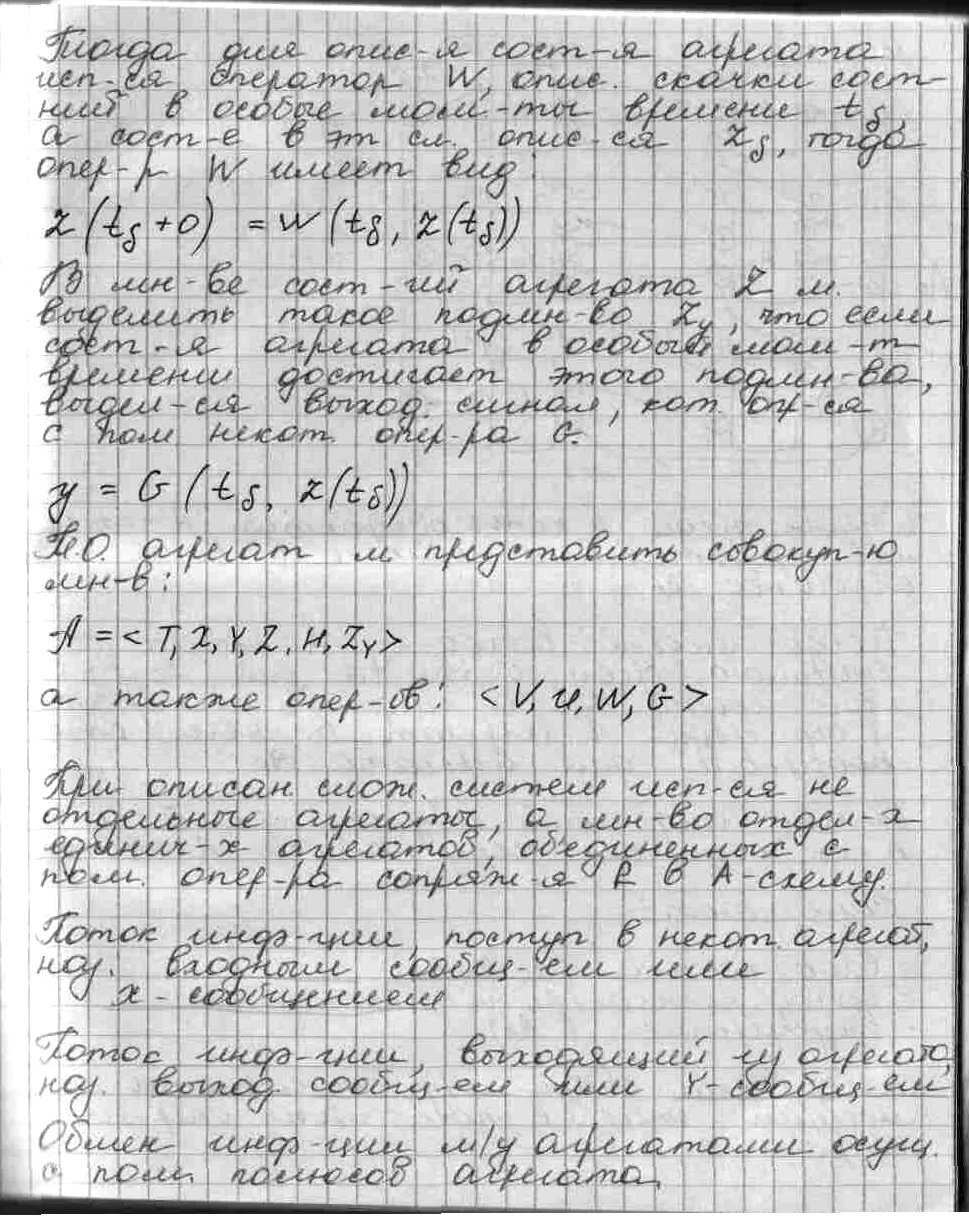 Тогда для опис-я сост-я агрегата
исп-ся оператор W, опис. скачки сост-
ний в особые мом-ты времени t_δ,
а сост-е в эт см. опис-ся Z_δ, тогда
опер-р W имеет вид:
z(t_δ+0) = W(t_δ, z(t_δ))
В мн-ве сост-ний агрегата Z м.
выделить такое подмн-во Z_y, что если
сост-я агрегата в особый мом-т
времени достигает этого подмн-ва,
выдел-ся выход. сигнал, кот. опр-ся
с пом некот. опер-ра G.
y = G(t_δ, z(t_δ))
Т.О. агрегат м представить совокуп-ю
мн-в:
A = < T, X, Y, Z, H, Z_Y >
а также опер-ов: < V, U, W, G >
При описан слож. систем исп-ся не
отдельные агрегаты, а мн-во отдел-х
единич-х агрегатов, объединенных с
пом. опер-ра сопряж-я R в А-схему.
Поток инф-ции, поступ в некот. агрегат,
наз. входным сообщ-ем или
х-сообщением
Поток инф-ции, выходящий из агрегата,
наз. выход. сообщ-ем или Y-сообщ-ем
Обмен инф-ции м/у агрегатами осущ.
с пом. полюсов агрегата.